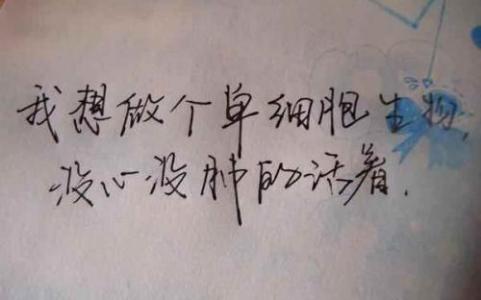 我想做个单细胞生物,
没心没肺的活着.